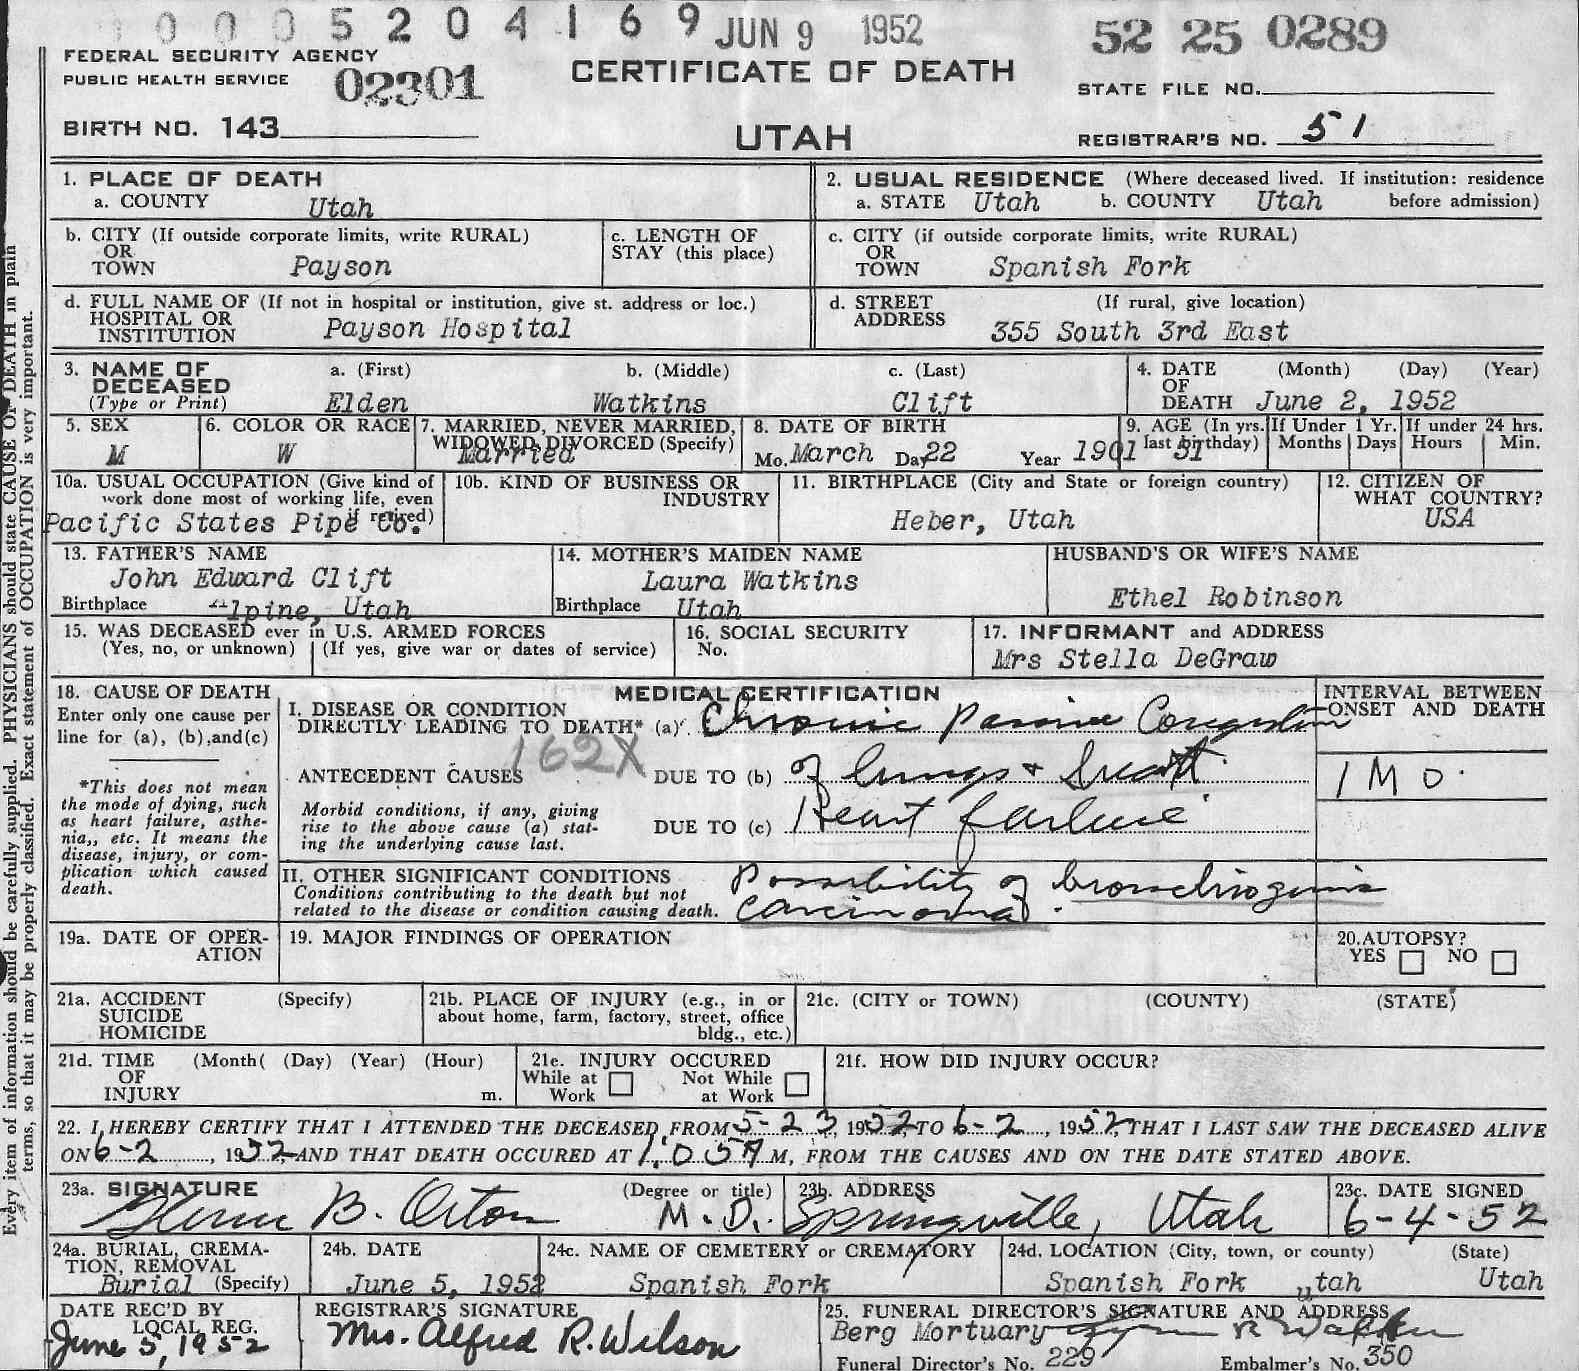 0 0 0 5 2 0 4 1 6 9 JUN 9 1952 52 25 0289
FEDERAL SECURITY AGENCY
PUBLIC HEALTH SERVICE 02301
CERTIFICATE OF DEATH
STATE FILE NO.
BIRTH NO. 143
UTAH
REGISTRAR'S NO. 51
Every item of information should be carefully supplied. PHYSICIANS should state CAUSE OF DEATH in plain
terms, so that it may be properly classified. Exact statement of OCCUPATION is very important.
1. PLACE OF DEATH
a. COUNTY Utah
2. USUAL RESIDENCE (Where deceased lived. If institution: residence
a. STATE Utah b. COUNTY Utah before admission)
b. CITY (If outside corporate limits, write RURAL)
OR
TOWN Payson
c. LENGTH OF
STAY (this place)
c. CITY (if outside corporate limits, write RURAL)
OR
TOWN Spanish Fork
d. FULL NAME OF (If not in hospital or institution, give st. address or loc.)
HOSPITAL OR
INSTITUTION Payson Hospital
d. STREET (If rural, give location)
ADDRESS 355 South 3rd East
3. NAME OF
DECEASED
(Type or Print)
a. (First) b. (Middle) c. (Last)
Elden Watkins Clift
4. DATE (Month) (Day) (Year)
OF
DEATH June 2, 1952
5. SEX
M
6. COLOR OR RACE
W
7. MARRIED, NEVER MARRIED,
WIDOWED, DIVORCED (Specify)
Married
8. DATE OF BIRTH
Mo. March Day 22 Year 1901
9. AGE (In yrs.
last birthday) 51
If Under 1 Yr.
Months Days
If under 24 hrs.
Hours Min.
10a. USUAL OCCUPATION (Give kind of
work done most of working life, even
if retired)
Pacific States Pipe Co.
10b. KIND OF BUSINESS OR
INDUSTRY
11. BIRTHPLACE (City and State or foreign country)
Heber, Utah
12. CITIZEN OF
WHAT COUNTRY?
USA
13. FATHER'S NAME
John Edward Clift
Birthplace Alpine, Utah
14. MOTHER'S MAIDEN NAME
Laura Watkins
Birthplace Utah
HUSBAND'S OR WIFE'S NAME
Ethel Robinson
15. WAS DECEASED ever in U.S. ARMED FORCES
(Yes, no, or unknown) (If yes, give war or dates of service)
16. SOCIAL SECURITY
No.
17. INFORMANT and ADDRESS
Mrs Stella DeGraw
18. CAUSE OF DEATH
Enter only one cause per
line for (a), (b),and(c)
*This does not mean
the mode of dying, such
as heart failure, asthe-
nia,, etc. It means the
disease, injury, or com-
plication which caused
death.
MEDICAL CERTIFICATION
I. DISEASE OR CONDITION
DIRECTLY LEADING TO DEATH* (a) Chronic Passive Congestion
162X
ANTECEDENT CAUSES DUE TO (b) of lungs + heart
Morbid conditions, if any, giving
rise to the above cause (a) stat-
ing the underlying cause last.
DUE TO (c) Heart failure
INTERVAL BETWEEN
ONSET AND DEATH
1 MO.
II. OTHER SIGNIFICANT CONDITIONS
Conditions contributing to the death but not
related to the disease or condition causing death.
Possibility of bronchiogenic
carcinoma.
19a. DATE OF OPER-
ATION
19. MAJOR FINDINGS OF OPERATION
20.AUTOPSY?
YES NO
21a. ACCIDENT (Specify)
SUICIDE
HOMICIDE
21b. PLACE OF INJURY (e.g., in or
about home, farm, factory, street, office
bldg., etc.)
21c. (CITY or TOWN) (COUNTY) (STATE)
21d. TIME (Month( (Day) (Year) (Hour)
OF
INJURY m.
21e. INJURY OCCURED
While at Work
Not While at Work
21f. HOW DID INJURY OCCUR?
22. I HEREBY CERTIFY THAT I ATTENDED THE DECEASED FROM 5-23, 1952, TO 6-2, 1952, THAT I LAST SAW THE DECEASED ALIVE
ON 6-2, 1952, AND THAT DEATH OCCURED AT 1:05 A M, FROM THE CAUSES AND ON THE DATE STATED ABOVE.
23a. SIGNATURE (Degree or title)
Glenn B. Orton M.D.
23b. ADDRESS
Springville, Utah
23c. DATE SIGNED
6-4-52
24a. BURIAL, CREMA-
TION, REMOVAL
Burial (Specify)
24b. DATE
June 5, 1952
24c. NAME OF CEMETERY or CREMATORY
Spanish Fork
24d. LOCATION (City, town, or county) (State)
Spanish Fork utah Utah
DATE REC'D BY
LOCAL REG.
June 5, 1952
REGISTRAR'S SIGNATURE
Mrs. Alfred R. Wilson
25. FUNERAL DIRECTOR'S SIGNATURE AND ADDRESS
Berg Mortuary
Funeral Director's No. 229 Embalmer's No. 350